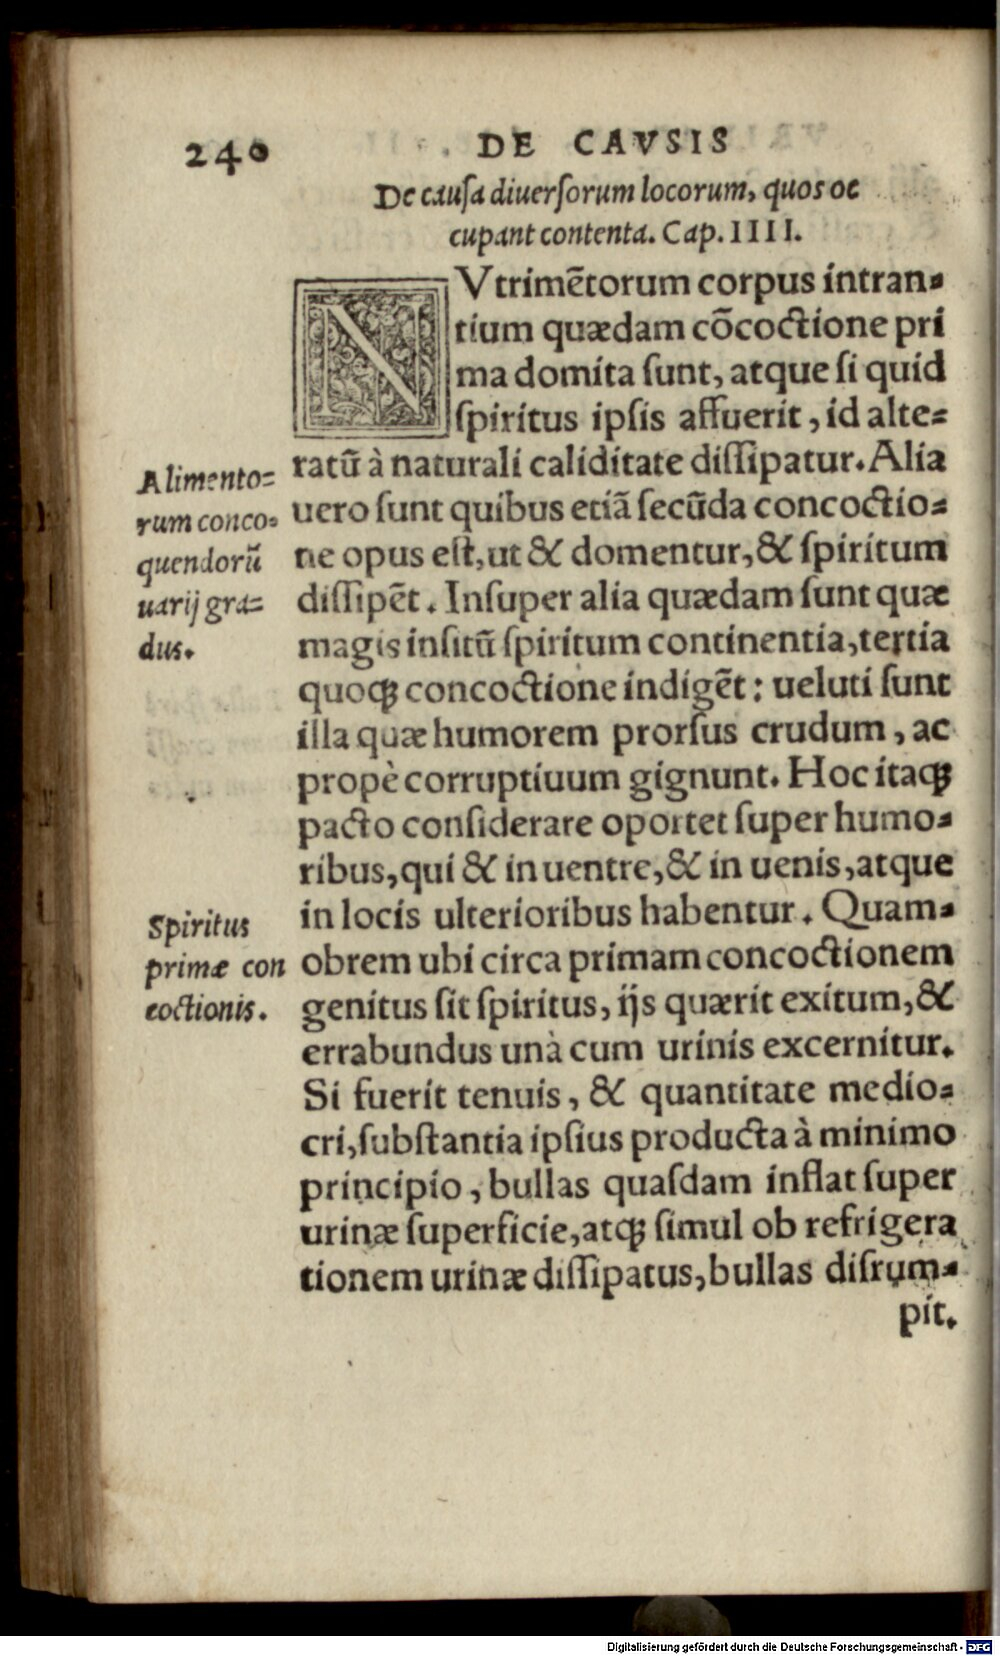 240 DE CAVSIS
De cauſa diuerſorum locorum, quos oc
cupant contenta. Cap. IIII.
NVtrimẽtorum corpus intran-
tium quædam cõcoctione pri
ma domita ſunt, atque ſi quid
ſpiritus ipſis affuerit, id alte-
ratũ à naturali caliditate diſſipatur. Alia
uero ſunt quibus etiã ſecũda concoctio-
ne opus eſt, ut & domentur, & ſpiritum
diſſipẽt. Inſuper alia quædam ſunt quæ
magis inſitũ ſpiritum continentia, tertia
quoqꝫ concoctione indigẽt: ueluti ſunt
illa quæ humorem prorſus crudum, ac
propè corruptiuum gignunt. Hoc itaqꝫ
pacto conſiderare oportet ſuper humo-
ribus, qui & in uentre, & in uenis, atque
in locis ulterioribus habentur. Quam-
obrem ubi circa primam concoctionem
genitus ſit ſpiritus, ijs quærit exitum, &
errabundus unà cum urinis excernitur.
Si fuerit tenuis, & quantitate medio-
cri, ſubſtantia ipſius producta à minimo
principio, bullas quaſdam inflat ſuper
urinæ ſuperficie, atqꝫ ſimul ob refrigera
tionem urinæ diſſipatus, bullas diſrum-
pit.
Alimento-
rum conco-
quendorũ
uarij gra-
dus.
Spiritus
primæ con
coctionis.
Digitalisierung gefördert durch die Deutsche Forschungsgemeinschaft - DFG